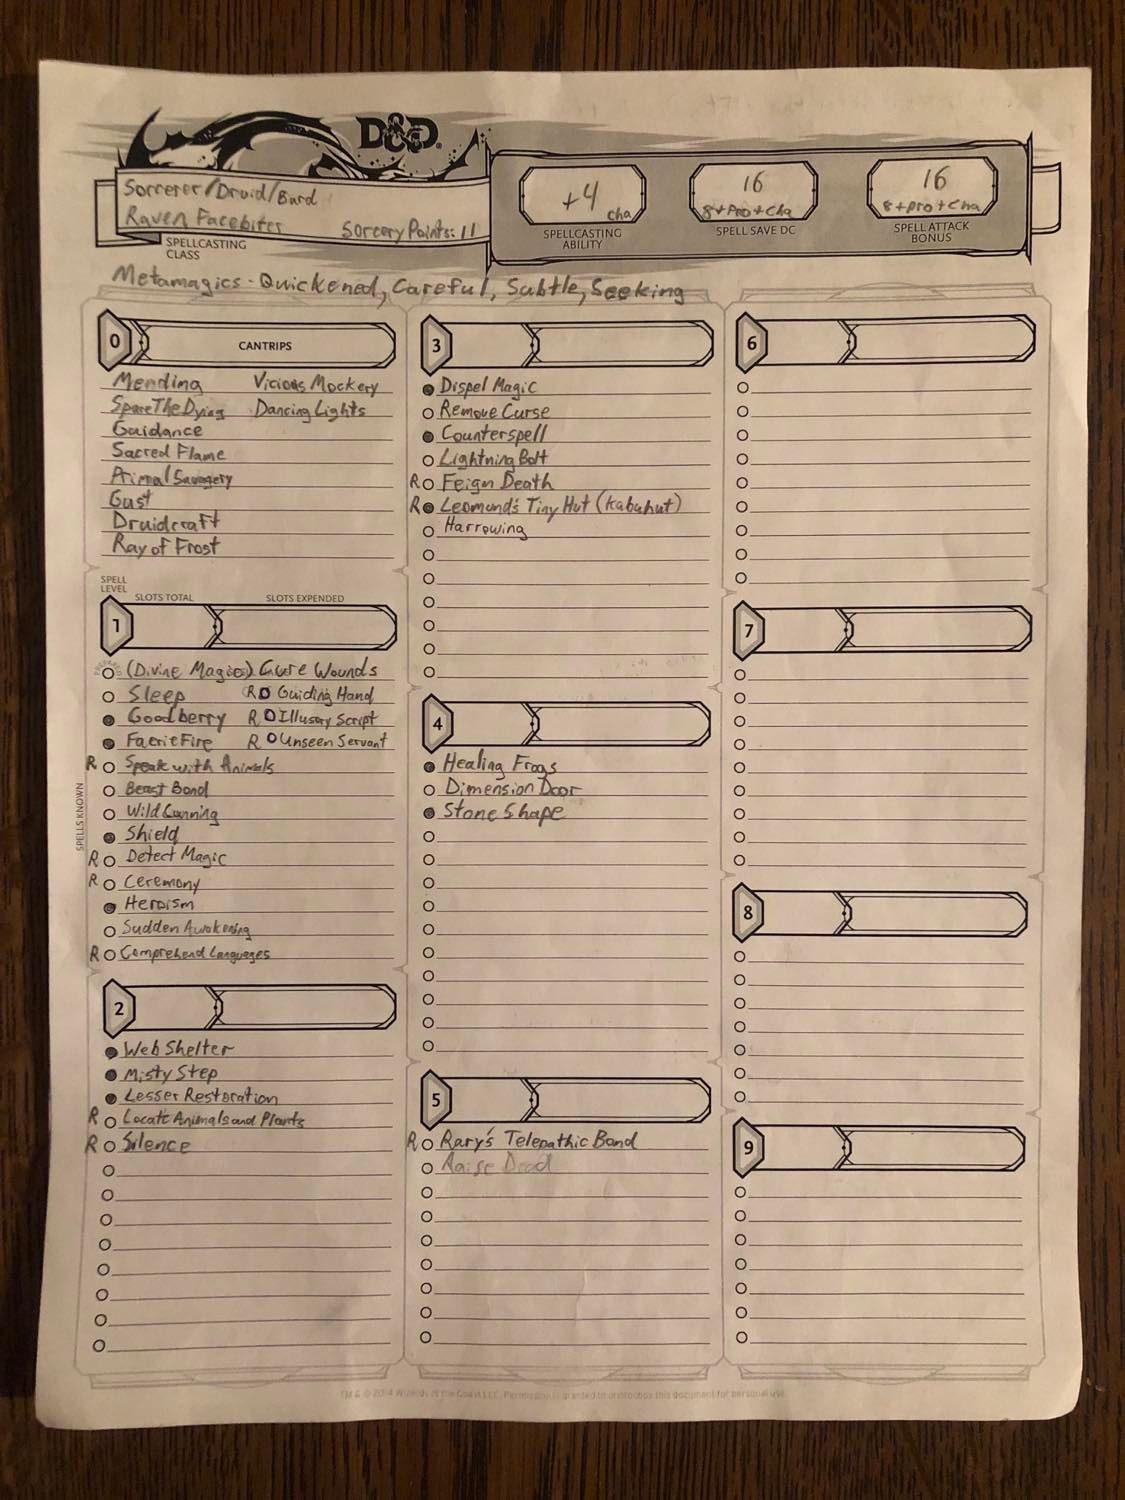 D&D
Sorcerer/Druid/Bard
Raven Facebiter Sorcery Points: 11
SPELLCASTING
CLASS
+4 cha
SPELLCASTING
ABILITY
16
8+Pro+Cha
SPELL SAVE DC
16
8+pro+Cha
SPELL ATTACK
BONUS
Metamagics - Quickened, Careful, Subtle, Seeking
0 CANTRIPS
Mending Vicious Mockery
Spare The Dying Dancing Lights
Guidance
Sacred Flame
Animal Savagery
Gust
Druidcraft
Ray of Frost
SPELL
LEVEL
SLOTS TOTAL SLOTS EXPENDED
1
(Divine Magic) Cure Wounds
Sleep R Guiding Hand
Goodberry R Illusory Script
Faerie Fire R Unseen Servant
R Speak with Animals
Beast Bond
Wild Cunning
Shield
R Detect Magic
R Ceremony
Heroism
Sudden Awakening
R Comprehend Languages
SPELLS KNOWN
2
Web Shelter
Misty Step
Lesser Restoration
R Locate Animals and Plants
R Silence
3
Dispel Magic
Remove Curse
Counterspell
Lightning Bolt
R Feign Death
R Leomund's Tiny Hut (Kabuhut)
Harrowing
4
Healing Frogs
Dimension Door
Stone Shape
5
R Rary's Telepathic Bond
Raise Dead
6
7
8
9
TM & © 2014 Wizards of the Coast LLC. Permission is granted to photocopy this document for personal use.